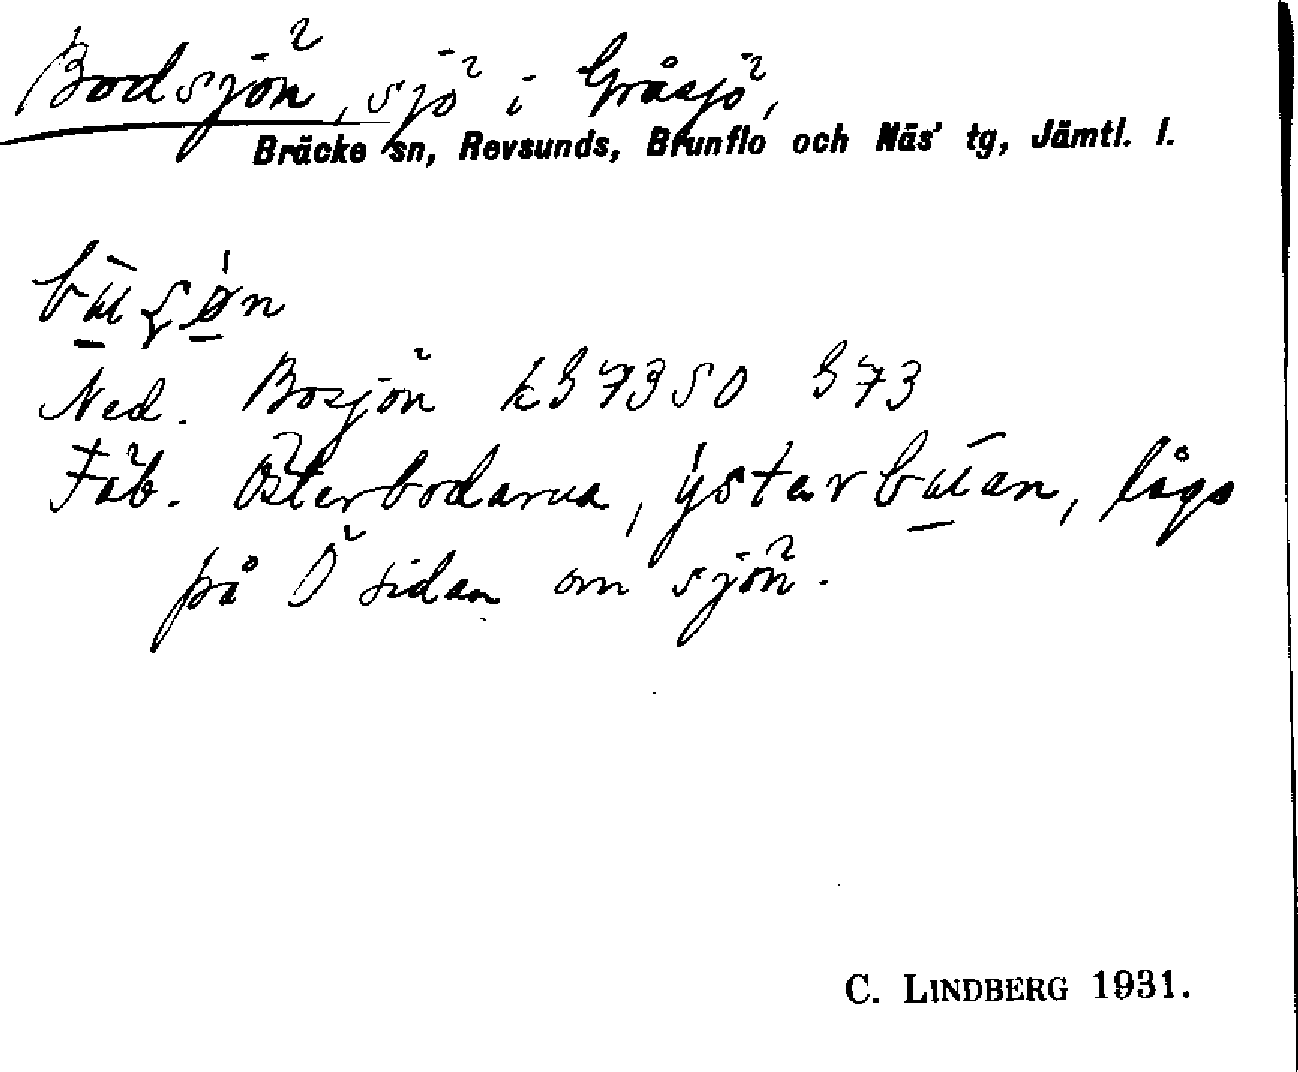 Bodsjön, sjö i Gråsjö,
Bräcke sn, Revsunds, Brunflo och Näs' tg, Jämtl. l.
Ned. Bosjön k37350 373
Fäb. Österbodarna, ýstarbu̱an, lågo
på Ö sidan om sjön.
C. LINDBERG 1931.